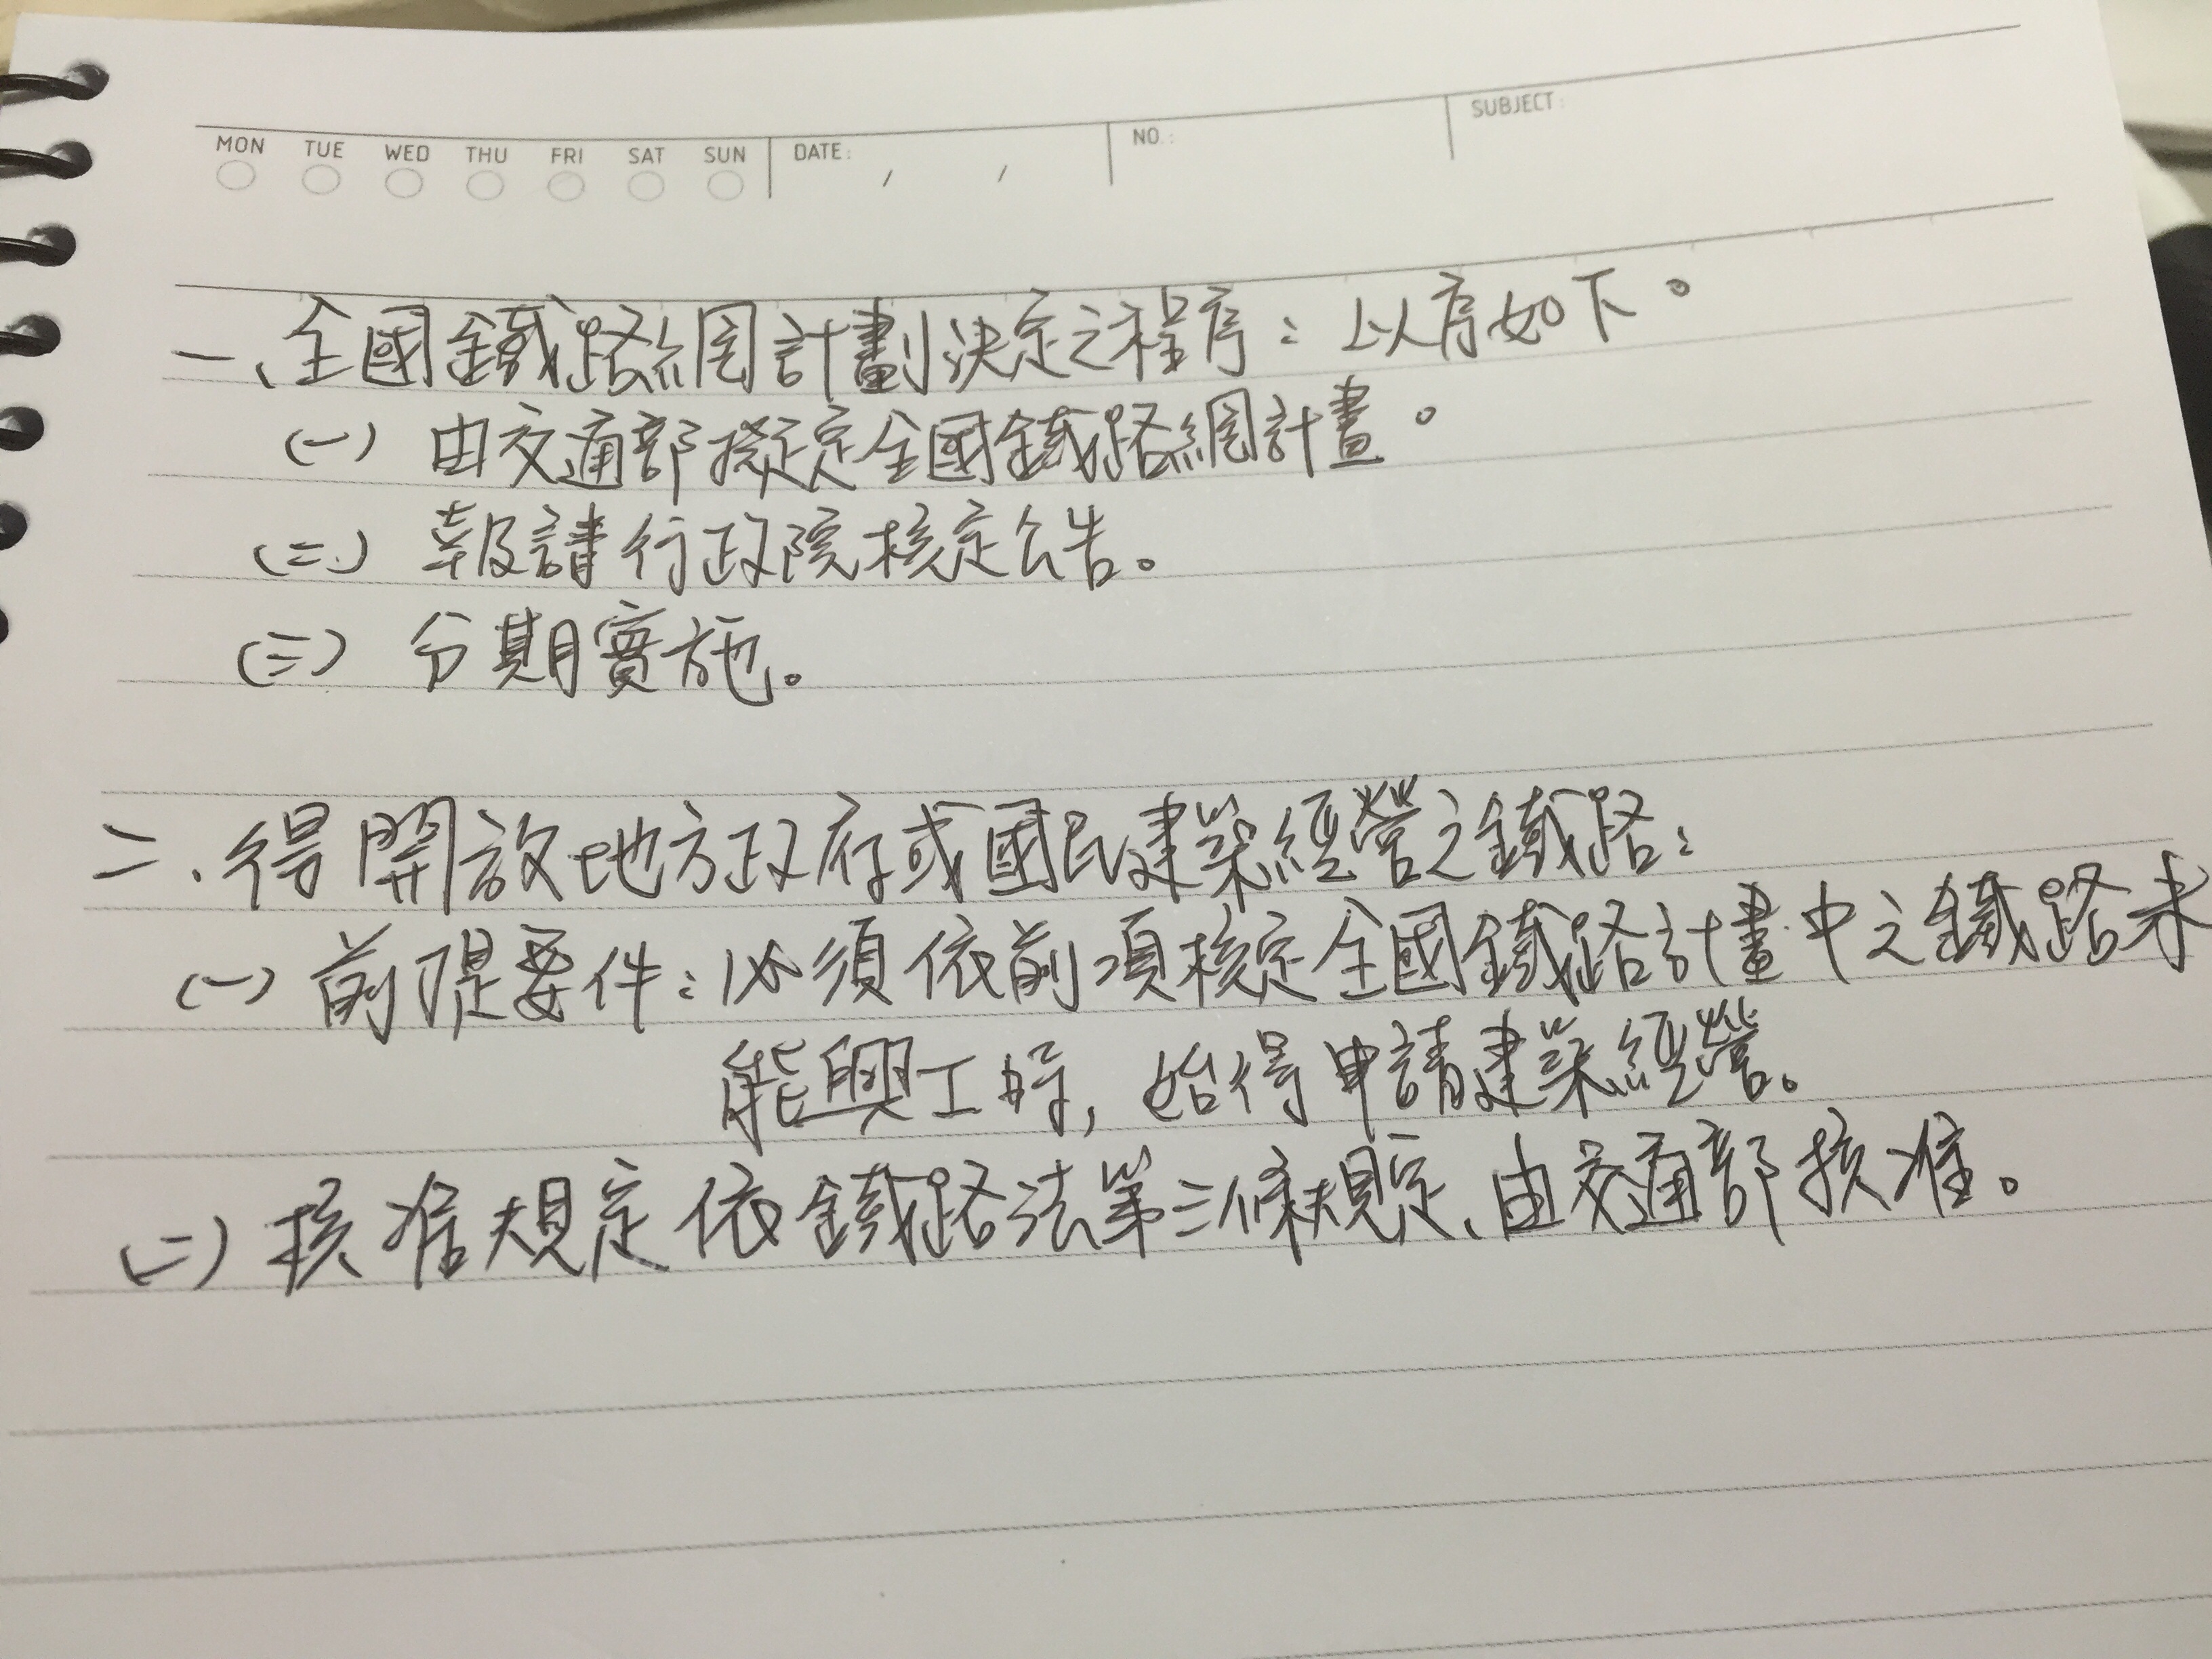 MON TUE WED THU FRI SAT SUN DATE: / / NO.: SUBJECT:
一、全國鐵路網計劃決定之程序：以序如下。
(一) 由交通部擬定全國鐵路網計畫。
(二) 報請行政院核定公告。
(三) 分期實施。
二、得開放地方政府或國民建築經營之鐵路：
(一) 前提要件：必須依前項核定全國鐵路計畫中之鐵路未
能興工時，始得申請建築經營。
(二) 核准規定依鐵路法第三條規定、由交通部核准。